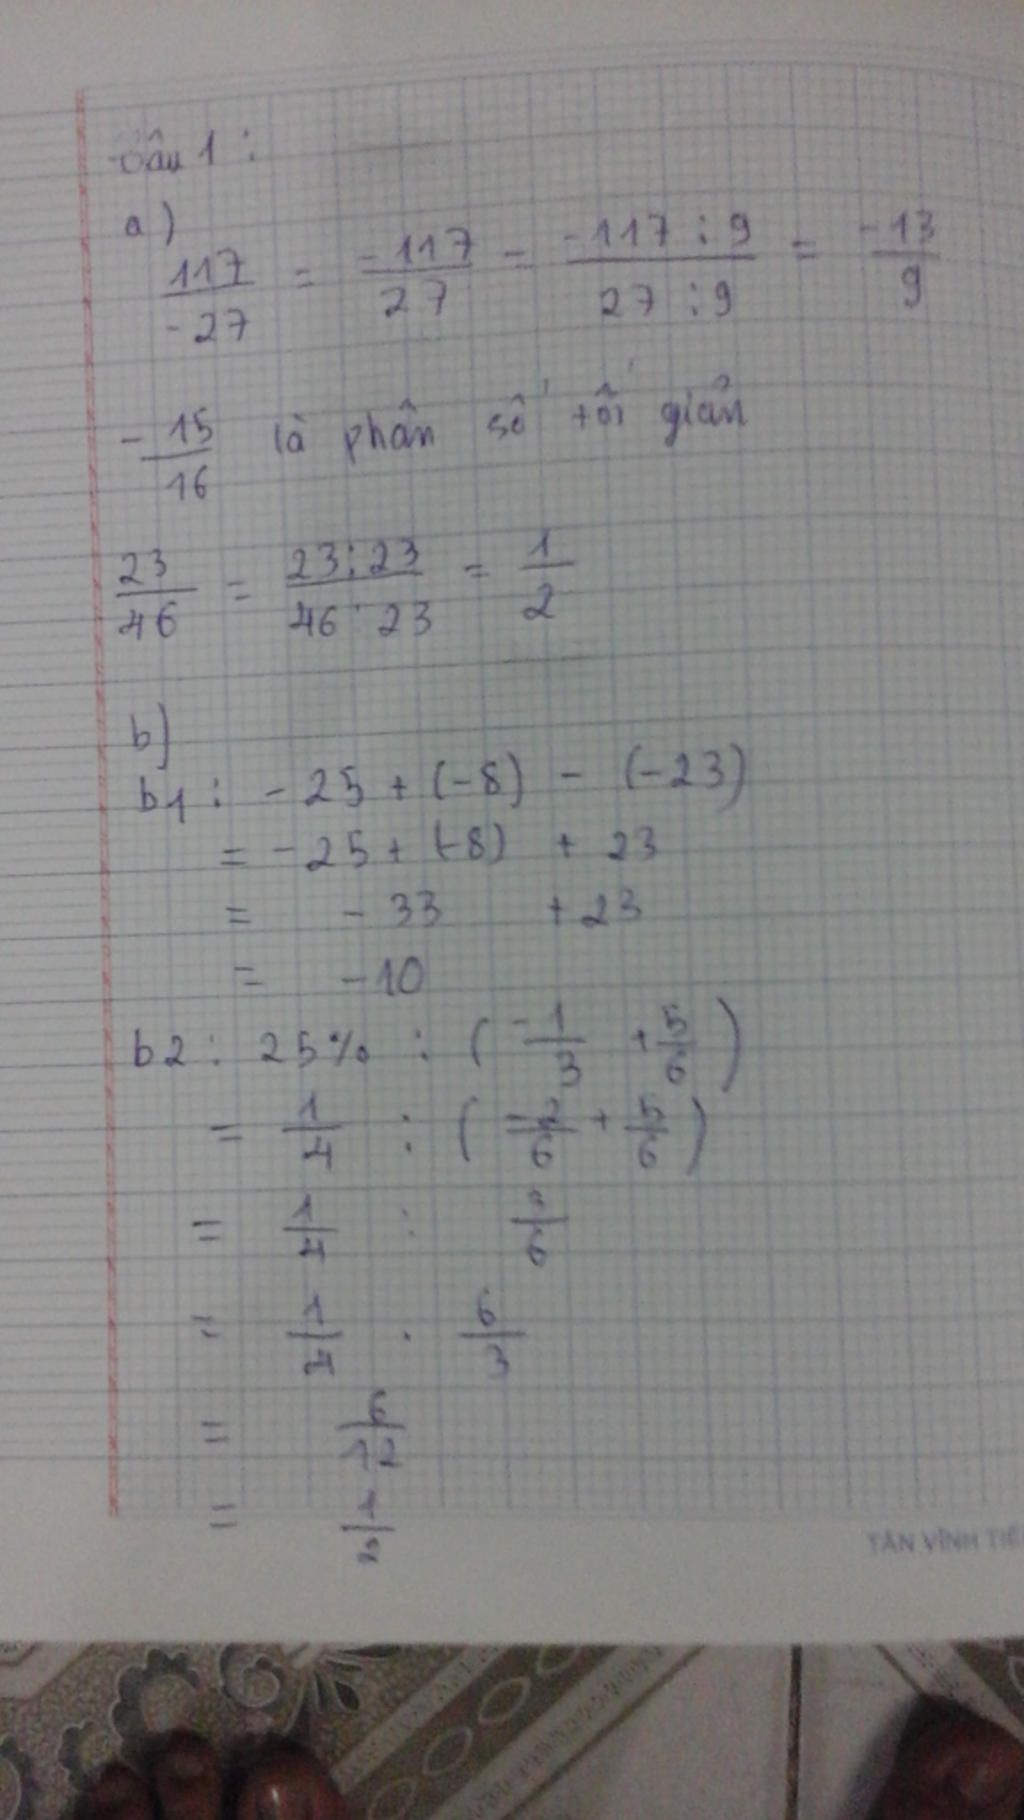 Câu 1 :
a)
117/-27 = -117/27 = -117 : 9/27 : 9 = -13/9
-15/16 là phân số tối giản
23/46 = 23:23/46:23 = 1/2
b)
b1 : -25 + (-8) - (-23)
= -25 + (-8) + 23
= -33 + 23
= -10
b2 : 25% : (-1/3 + 5/6)
= 1/4 : (-2/6 + 5/6)
= 1/4 : 3/6
= 1/4 . 6/3
= 6/12
= 1/2
TÂN VĨNH